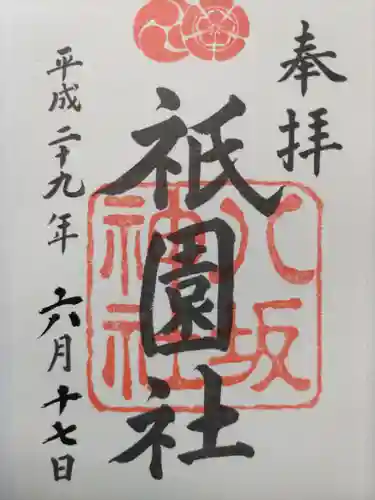 奉拝
八坂神社
祇園社
平成二十九年 六月十七日